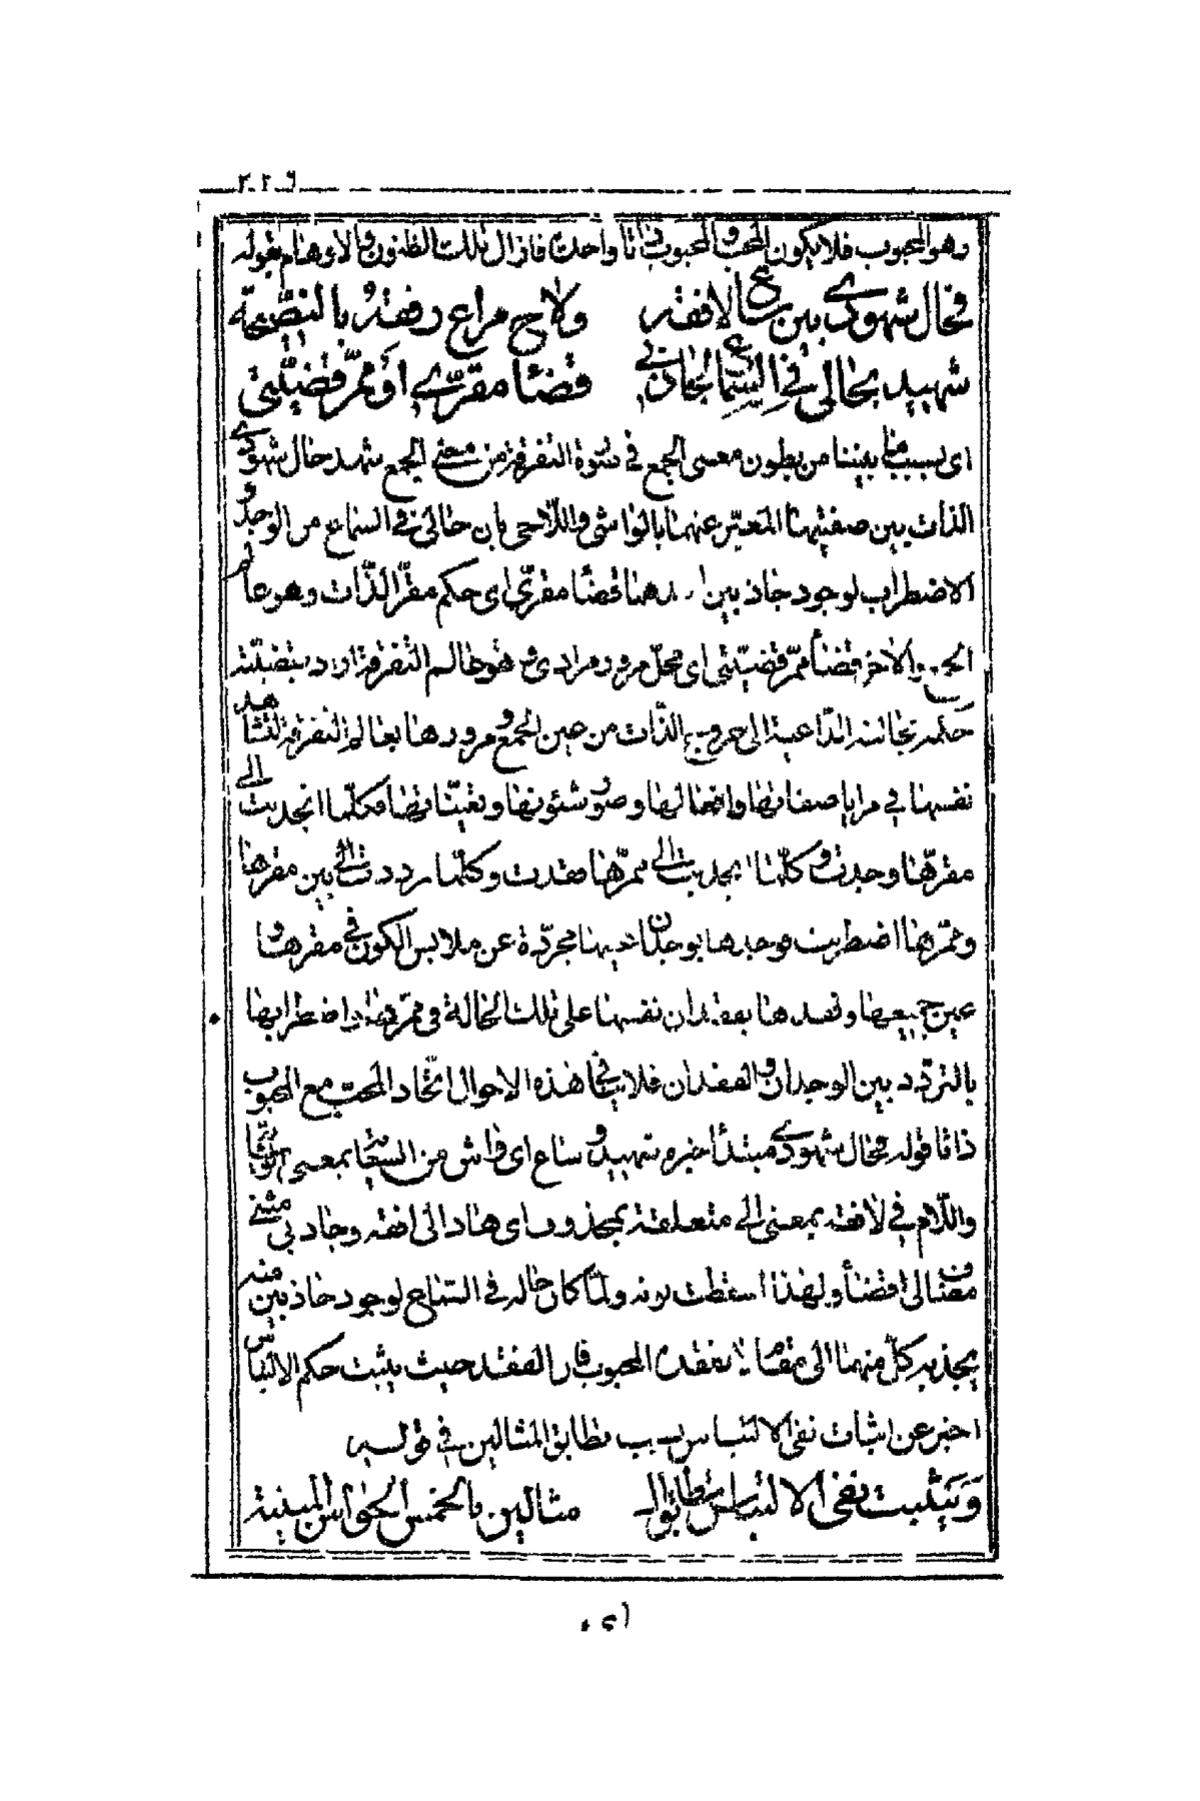 ٢٢٦
وهو المحبوب فلا يكون المحب والمحبوب ذاتا واحدة فازال تلك الظنون والاوهام بقوله
فحال شهودى بين ساع لافقه ولاح مراع رفقه بالنصيحة
شهيد بحالى فى السماع لجاذبى قضاء مقرى او ممر قضيتى
اى بسبب ما بيننا من بطون معنى الجمع فى التفرقة من الجمع شهد حال شهودى
الذات بين صفتيها المعبر عنهما بالواشى واللاحى بان حالى فى السماع من الوجد و
الاضطراب لوجود جاذبين قضاء مقرى اى حكم مقر الذات وهو عالم
الجمع والاخر قضاء ممر قضيتى اى محل مرور مرادى وهو عالم التفرقة اراد بقضيته
الداعية الى خروج الذات من عين الجمع ومرورها بعالم التفرقة لتشاهد
نفسها فى مرايا صفاتها وافعالها وصور شئونها وتعيناتها فكلما انجذبت الى
مقرها وجدت وكلما انجذبت الى ممرها فقدت وكلما رددت بين مقرها
وممرها اضطربت فوجدها بوجدان عينها مجردة عن ملابس الكون فى مقرها و
عين جمعها وفقدها بفقدان نفسها على تلك الحالة فى ممرها واضطرابها
بالتردد بين الوجدان والفقدان فلا فى هذه الاحوال اتحاد المحب مع المحبوب
ذاتا قوله فحال شهودى مبتدأ خبره شهيد وساع اى واش من السعاية بمعنى
واللام فى لافقه بمعنى الى متعلقة بمحذوف اى هاد الى افقه وجاذبى مثنى
مضاف الى قضاء ولهذا اسقطت نونه ولما كان حاله فى السماع لوجود جاذبين
يجذبه كل منهما الى المحبوب الفقد حيث يثبت حكم الالتباس
اخبر عن اثبات نفى الالتباس بسبب تطابق المثالين فى قوله
ويثبت نفى الالتباس تطابق الـ مثالين بالخمس الحواس المبينة